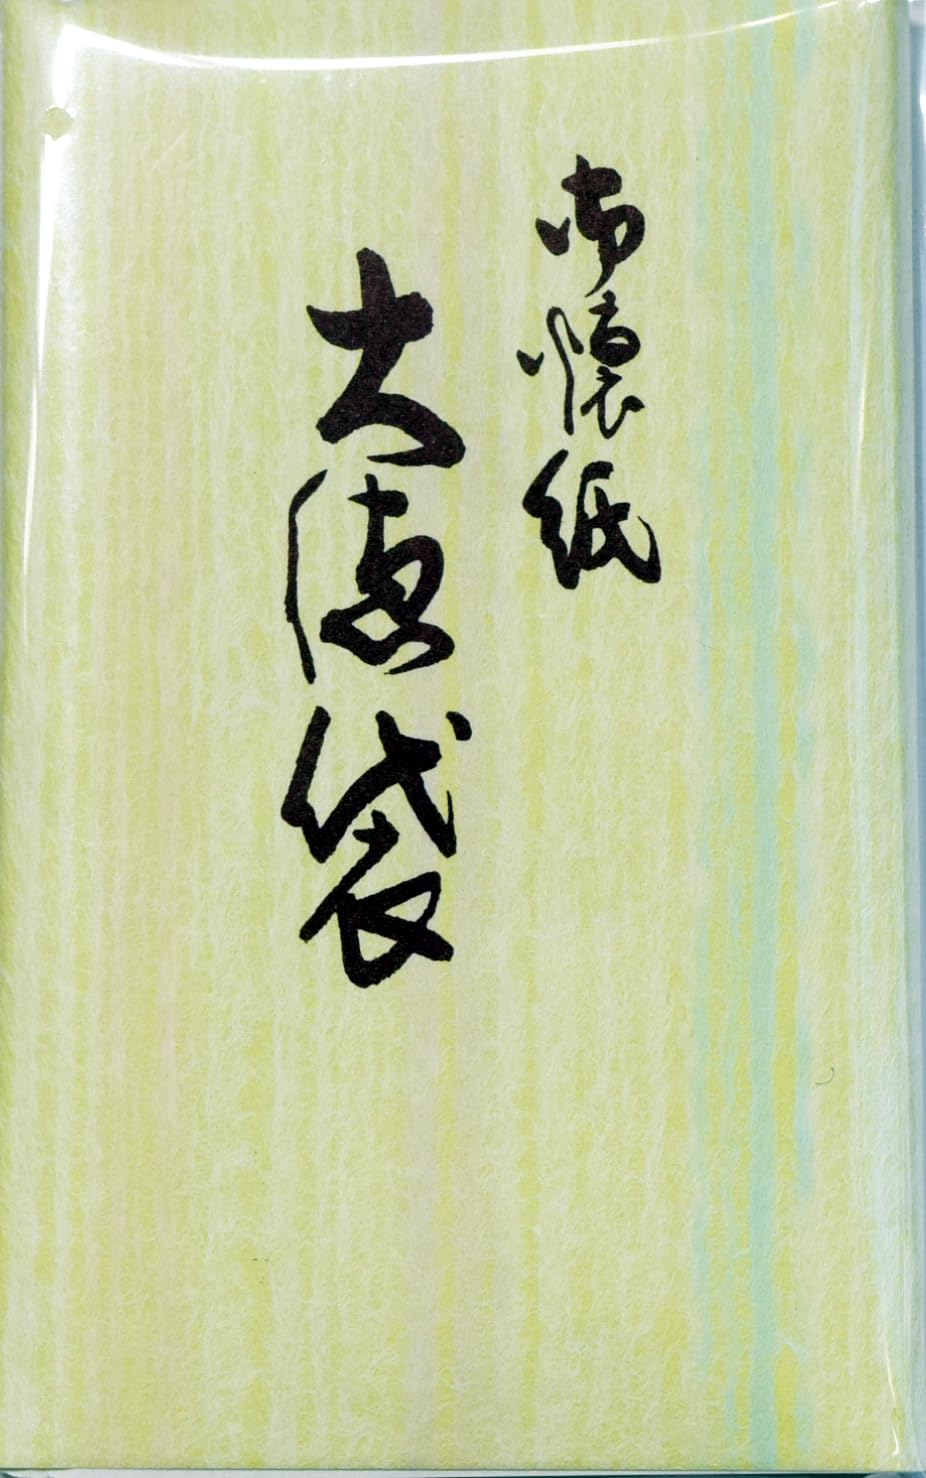 御懐紙
大徳袋